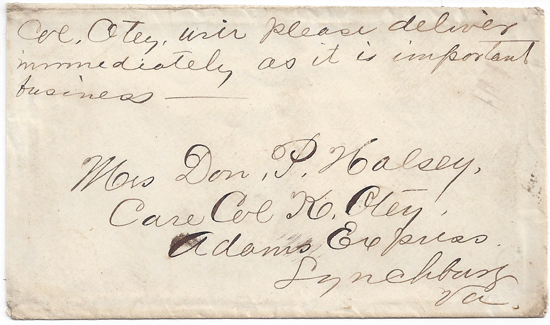 Col, Otey, will please deliver
immediately as it is important
business —
Mrs Don, P. Halsey,
Care Col K. Otey,
Adams Express.
Lynchburg
Va.